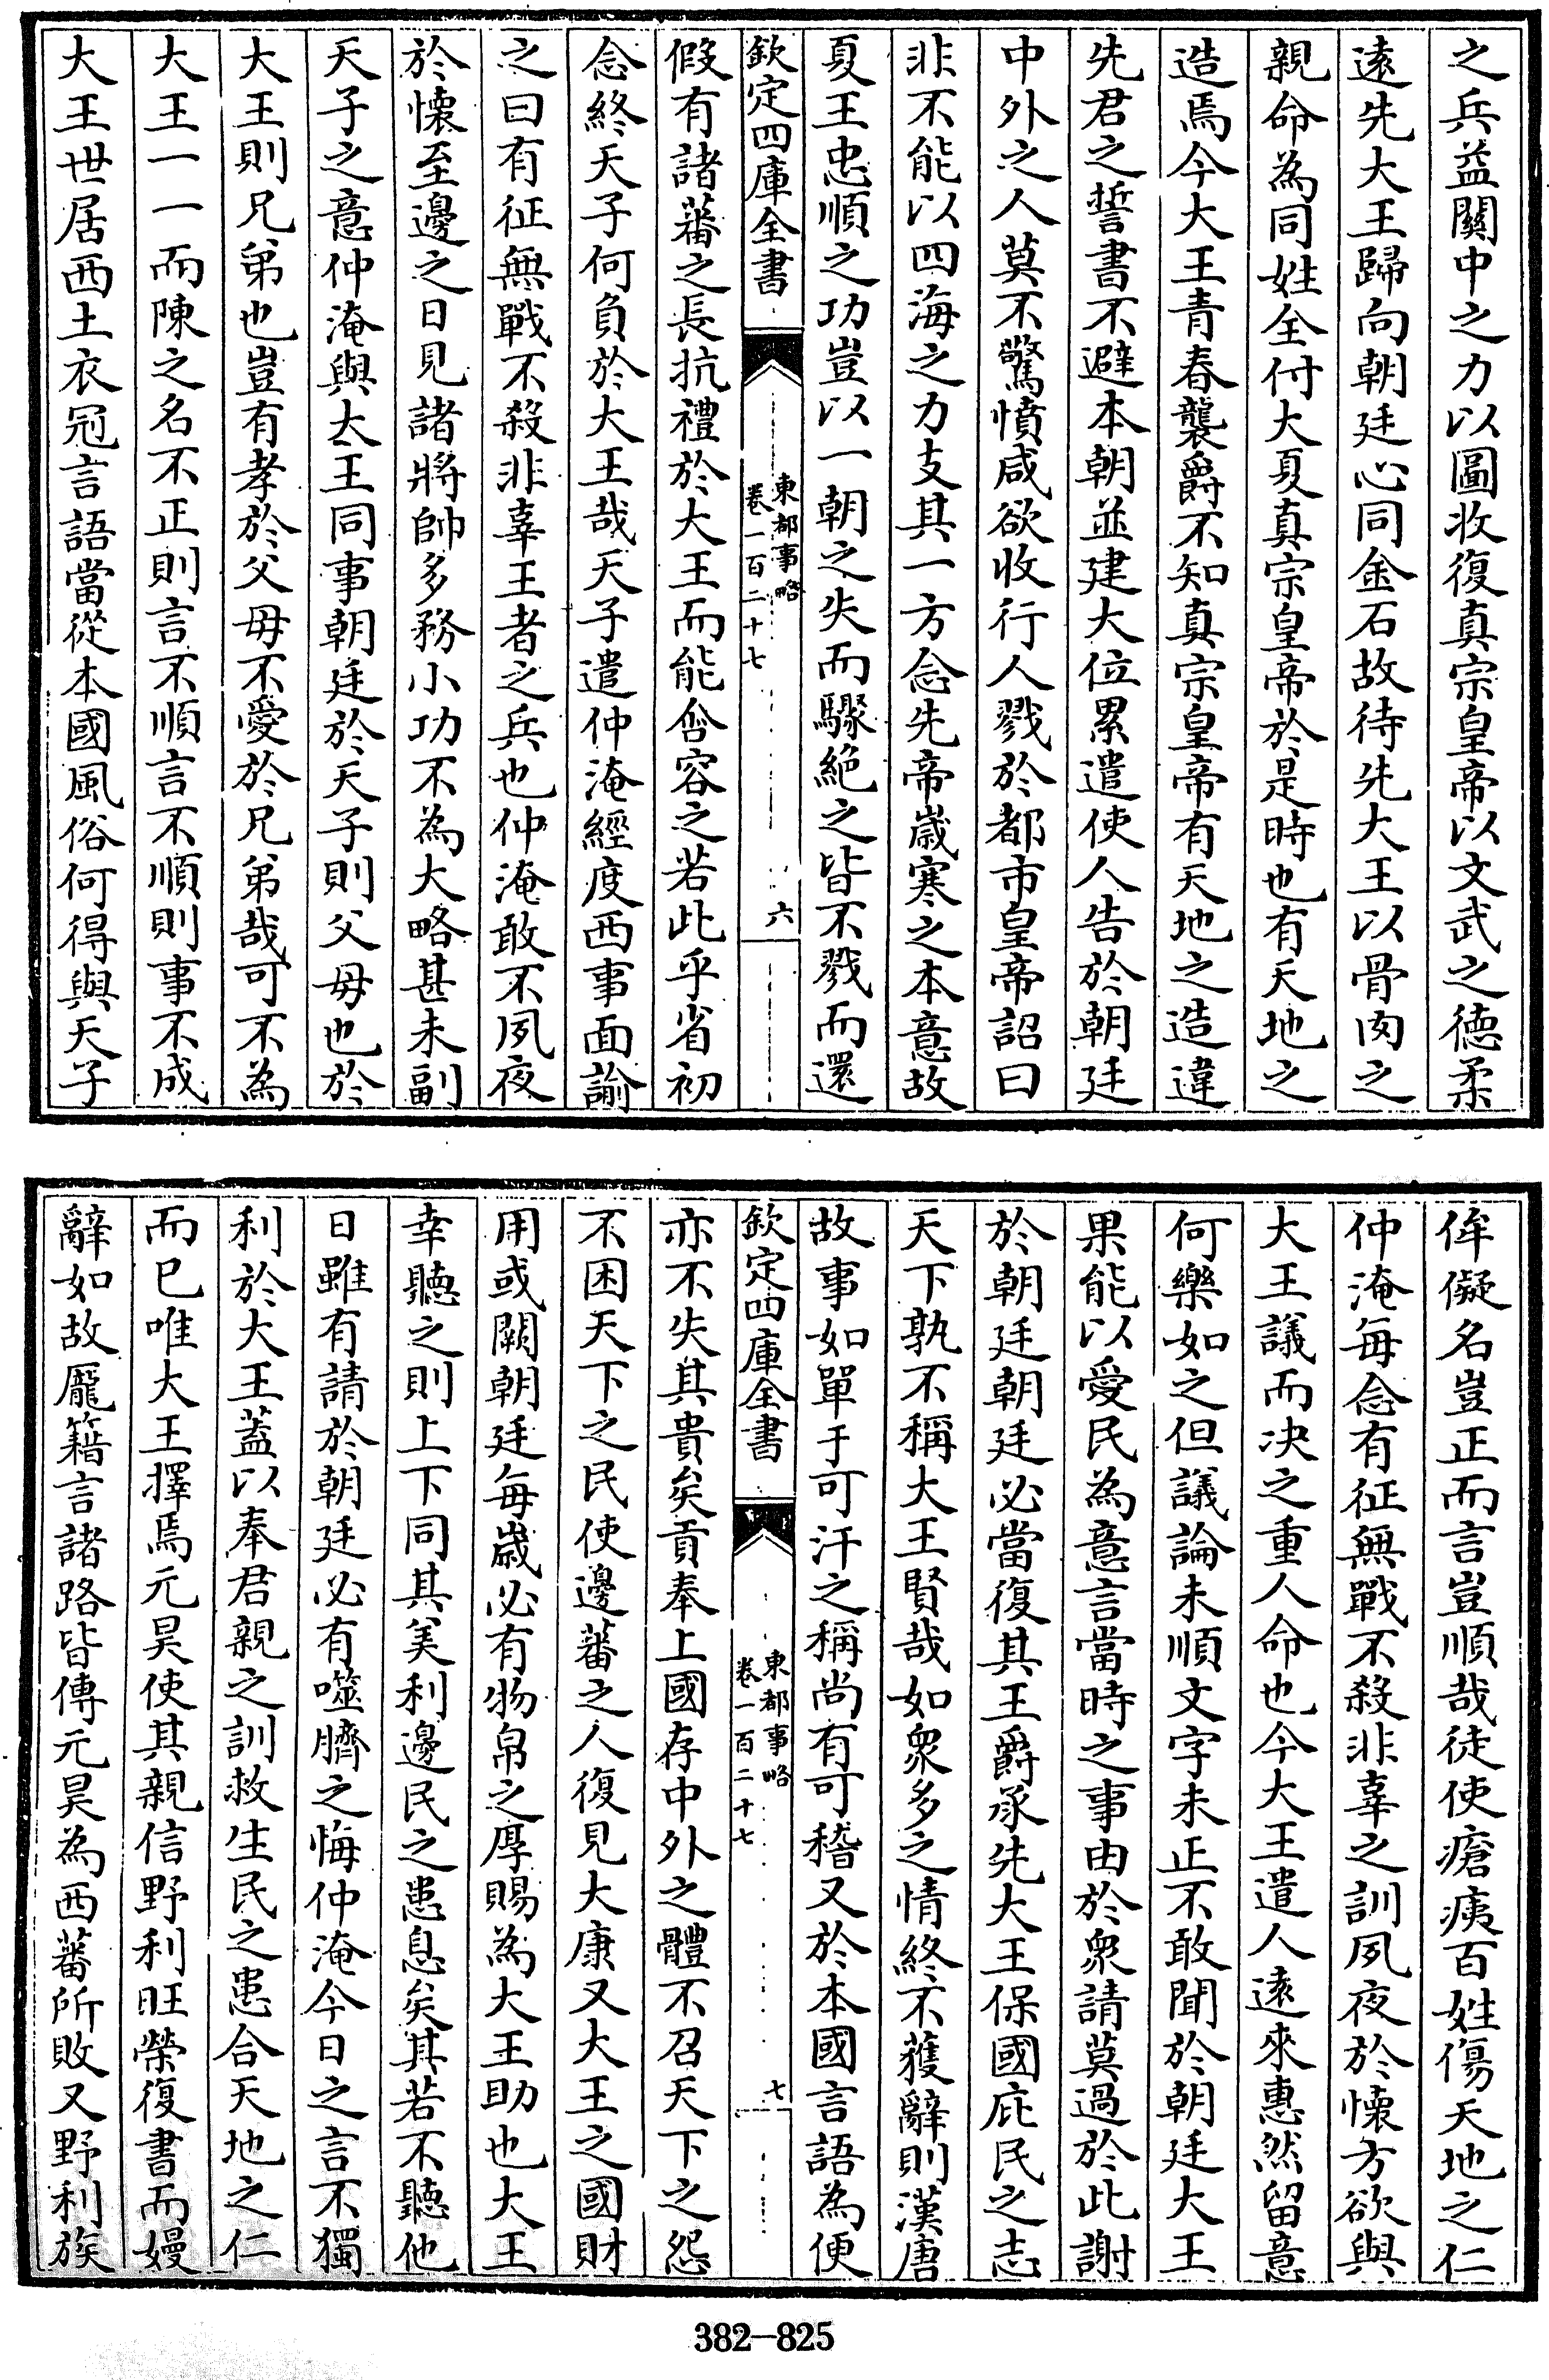 之兵益關中之力以圖收復真宗皇帝以文武之德柔
遠先大王歸向朝廷心同金石故待先大王以骨肉之
親命為同姓全付大夏真宗皇帝於是時也有天地之
造焉今大王青春襲爵不知真宗皇帝有天地之造違
先君之誓書不避本朝並建大位累遣使人告於朝廷
中外之人莫不驚憤咸欲收行人戮於都市皇帝詔曰
非不能以四海之力支其一方念先帝歲寒之本意故
夏王忠順之功豈以一朝之失而驟絕之皆不戮而還
欽定四庫全書
東都事略
卷一百二十七
六
假有諸蕃之長抗禮於大王而能含容之若此乎省初
念終天子何負於大王哉天子遣仲淹經度西事面諭
之曰有征無戰不殺非辜王者之兵也仲淹敢不夙夜
於懷至邊之日見諸將帥多務小功不為大略甚未副
天子之意仲淹與大王同事朝廷於天子則父母也於
大王則兄弟也豈有孝於父母不愛於兄弟哉可不為
大王一一而陳之名不正則言不順言不順則事不成
大王世居西土衣冠言語當從本國風俗何得與天子
侔儗名豈正而言豈順哉徒使瘡痍百姓傷天地之仁
仲淹每念有征無戰不殺非辜之訓夙夜於懷方欲與
大王議而决之重人命也今大王遣人遠來惠然留意
何樂如之但議論未順文字未正不敢聞於朝廷大王
果能以愛民為意言當時之事由於衆請莫過於此謝
於朝廷朝廷必當復其王爵承先大王保國庇民之志
天下孰不稱大王賢哉如衆多之情終不獲辭則漢唐
故事如單于可汗之稱尚有可稽又於本國言語為便
欽定四庫全書
東都事略
卷一百二十七
七
亦不失其貴矣貢奉上國存中外之體不召天下之怨
不困天下之民使邊蕃之人復見大康又大王之國財
用或闕朝廷每歲必有物帛之厚賜為大王助也大王
幸聽之則上下同其美利邊民之患息矣其若不聽他
日雖有請於朝廷必有噬臍之悔仲淹今日之言不獨
利於大王蓋以奉君親之訓救生民之患合天地之仁
而已唯大王擇焉元昊使其親信野利旺榮復書而嫚
辭如故龎籍言諸路皆傳元昊為西蕃所敗又野利族
382—825